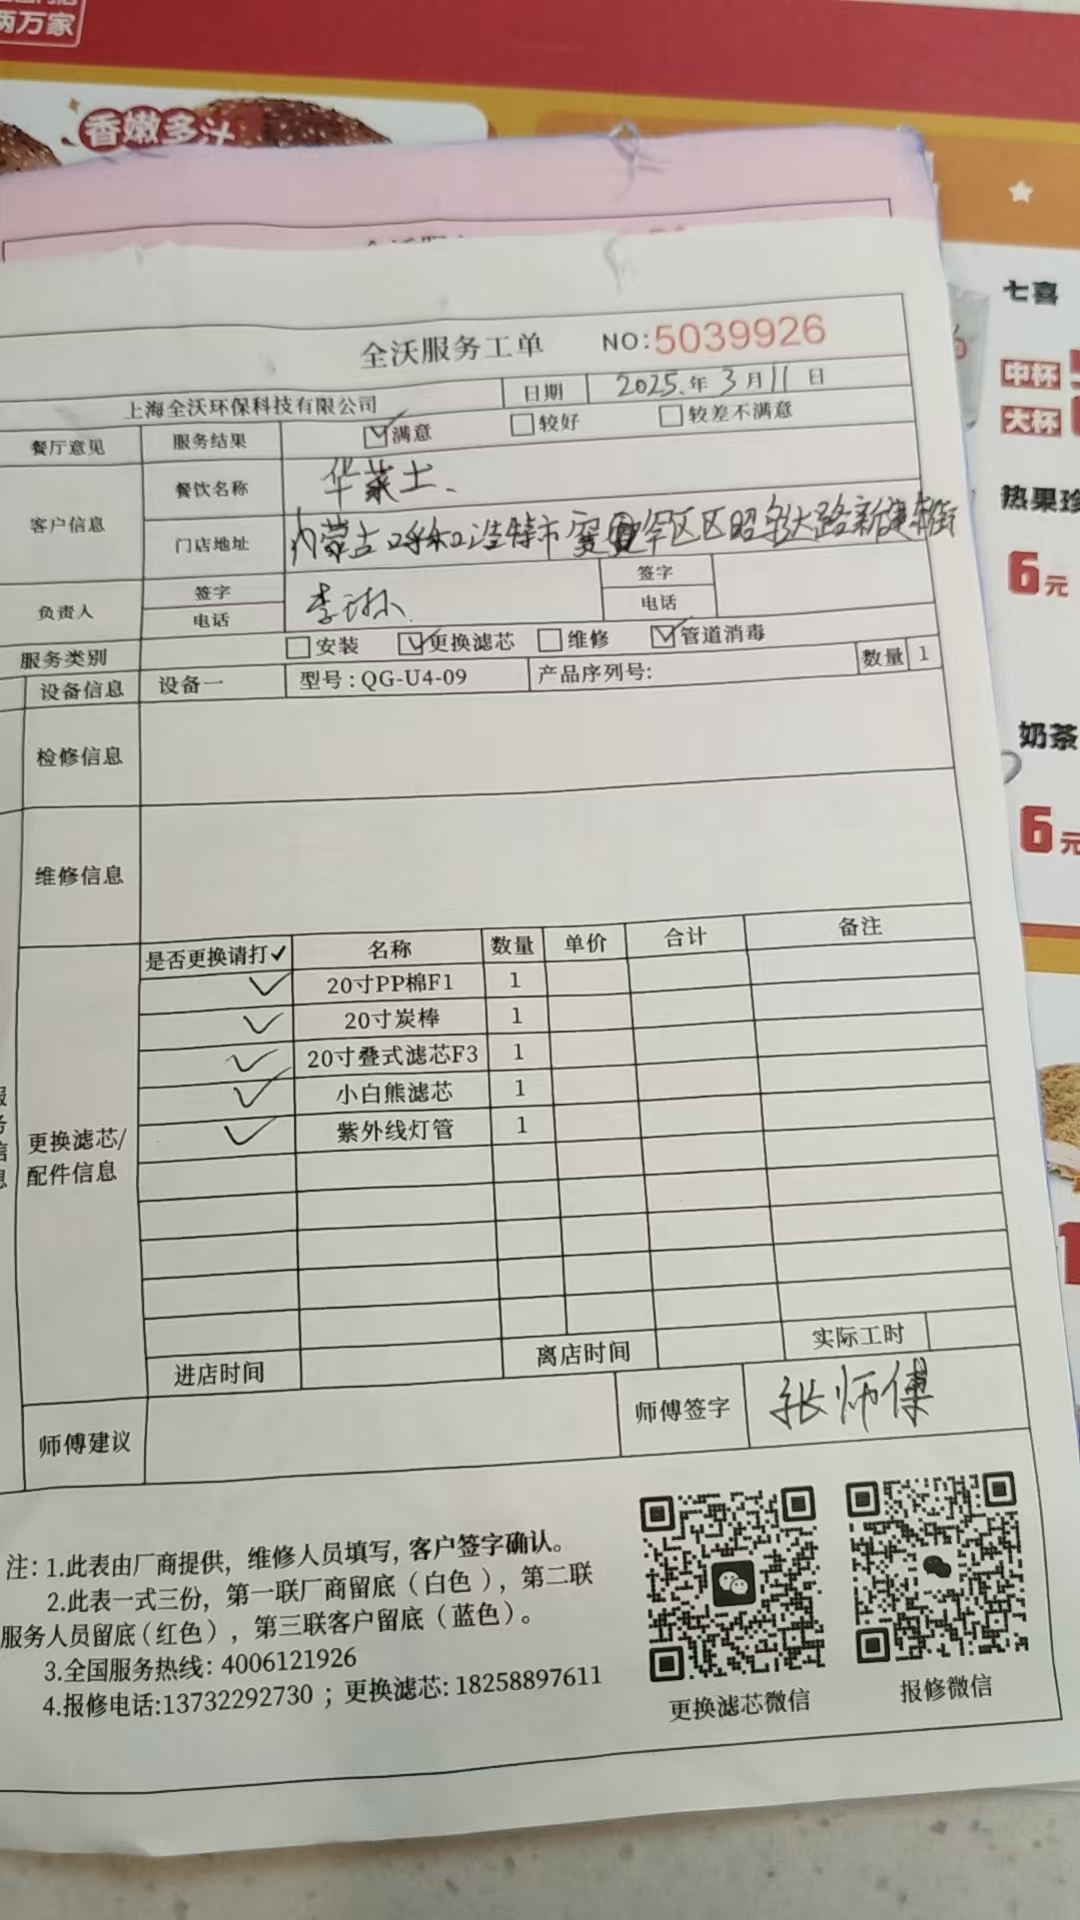 两万家
香嫩多汁
全沃服务工单 NO:5039926
上海全沃环保科技有限公司 日期 2025.年3月11日
餐厅意见 服务结果 满意 较好 较差不满意
客户信息 餐饮名称 华莱士、
门店地址 内蒙古呼和浩特市赛罕区区昭乌达路新建东街
负责人 签字 签字
电话 电话
服务类别 安装 更换滤芯 维修 管道消毒
设备信息 设备一 型号:QG-U4-09 产品序列号: 数量 1
检修信息
维修信息
是否更换请打✓ 名称 数量 单价 合计 备注
20寸PP棉F1 1
20寸炭棒 1
20寸叠式滤芯F3 1
小白熊滤芯 1
紫外线灯管 1
更换滤芯/
配件信息
进店时间 离店时间 实际工时
师傅建议 师傅签字 张师傅
注:1.此表由厂商提供,维修人员填写,客户签字确认。
2.此表一式三份,第一联厂商留底(白色),第二联
服务人员留底(红色),第三联客户留底(蓝色)。
3.全国服务热线:4006121926
4.报修电话:13732292730;更换滤芯:18258897611
更换滤芯微信 报修微信
七喜
中杯
大杯
热果珍
6元
奶茶
6元